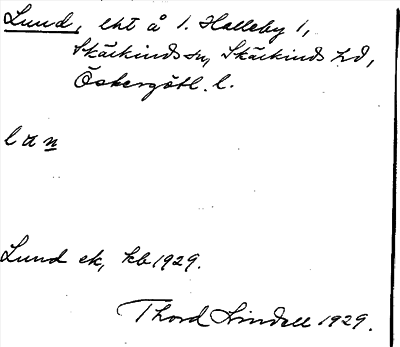 Lund, lht å 1. Halleby 1,
Skärkinds sn, Skärkinds hd,
Östergötl. l.
lan
Lund ek, kb 1929.
Thord Lindell 1929.